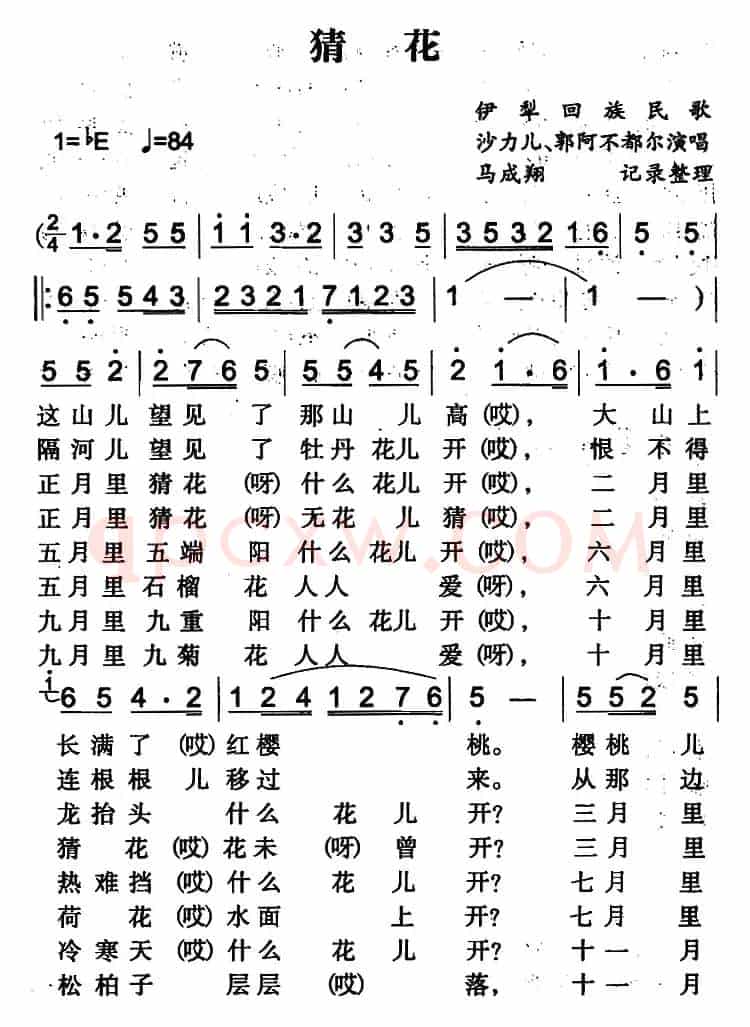 猜 花
伊犁回族民歌
1=♭E ♩=84 沙力儿、郭阿不都尔演唱
马成翔 记录整理
(2/4 1·2 5 5 | i i 3·2 | 3 3 5 | 3532 1 6 | 5 5 |
‖: 6 5 543 | 2321 7123 | 1 — | 1 — )
5 5 2 | 2 7 6 5 | 5 5 4 5 | 2 1·6 | 1·6 1 |
这山儿 望见 了 那山 儿 高(哎), 大 山上
隔河儿 望见 了 牡丹 花儿 开(哎), 恨 不得
正月里 猜花 (呀) 什么 花儿 开(哎), 二 月里
正月里 猜花 (呀) 无花 儿 猜(哎), 二 月里
五月里 五端 阳 什么 花儿 开(哎), 六 月里
五月里 石榴 花 人人 爱(呀), 六 月里
九月里 九重 阳 什么 花儿 开(哎), 十 月里
九月里 九菊 花 人人 爱(呀), 十 月里
6 5 4·2 | 1 2 4 1 2 7 6 | 5 — | 5 5 2 5 |
长满了 (哎)红樱 桃。 樱桃 儿
连根根 儿移过 来。 从那 边
龙抬头 什么 花 儿 开? 三月 里
猜 花 (哎)花未 (呀) 曾 开? 三月 里
热难挡 (哎)什么 花 儿 开? 七月 里
荷 花 (哎)水面 上 开? 七月 里
冷寒天 (哎)什么 花 儿 开? 十一 月
松柏子 层层 (哎) 落, 十一 月
qpcxw.COM